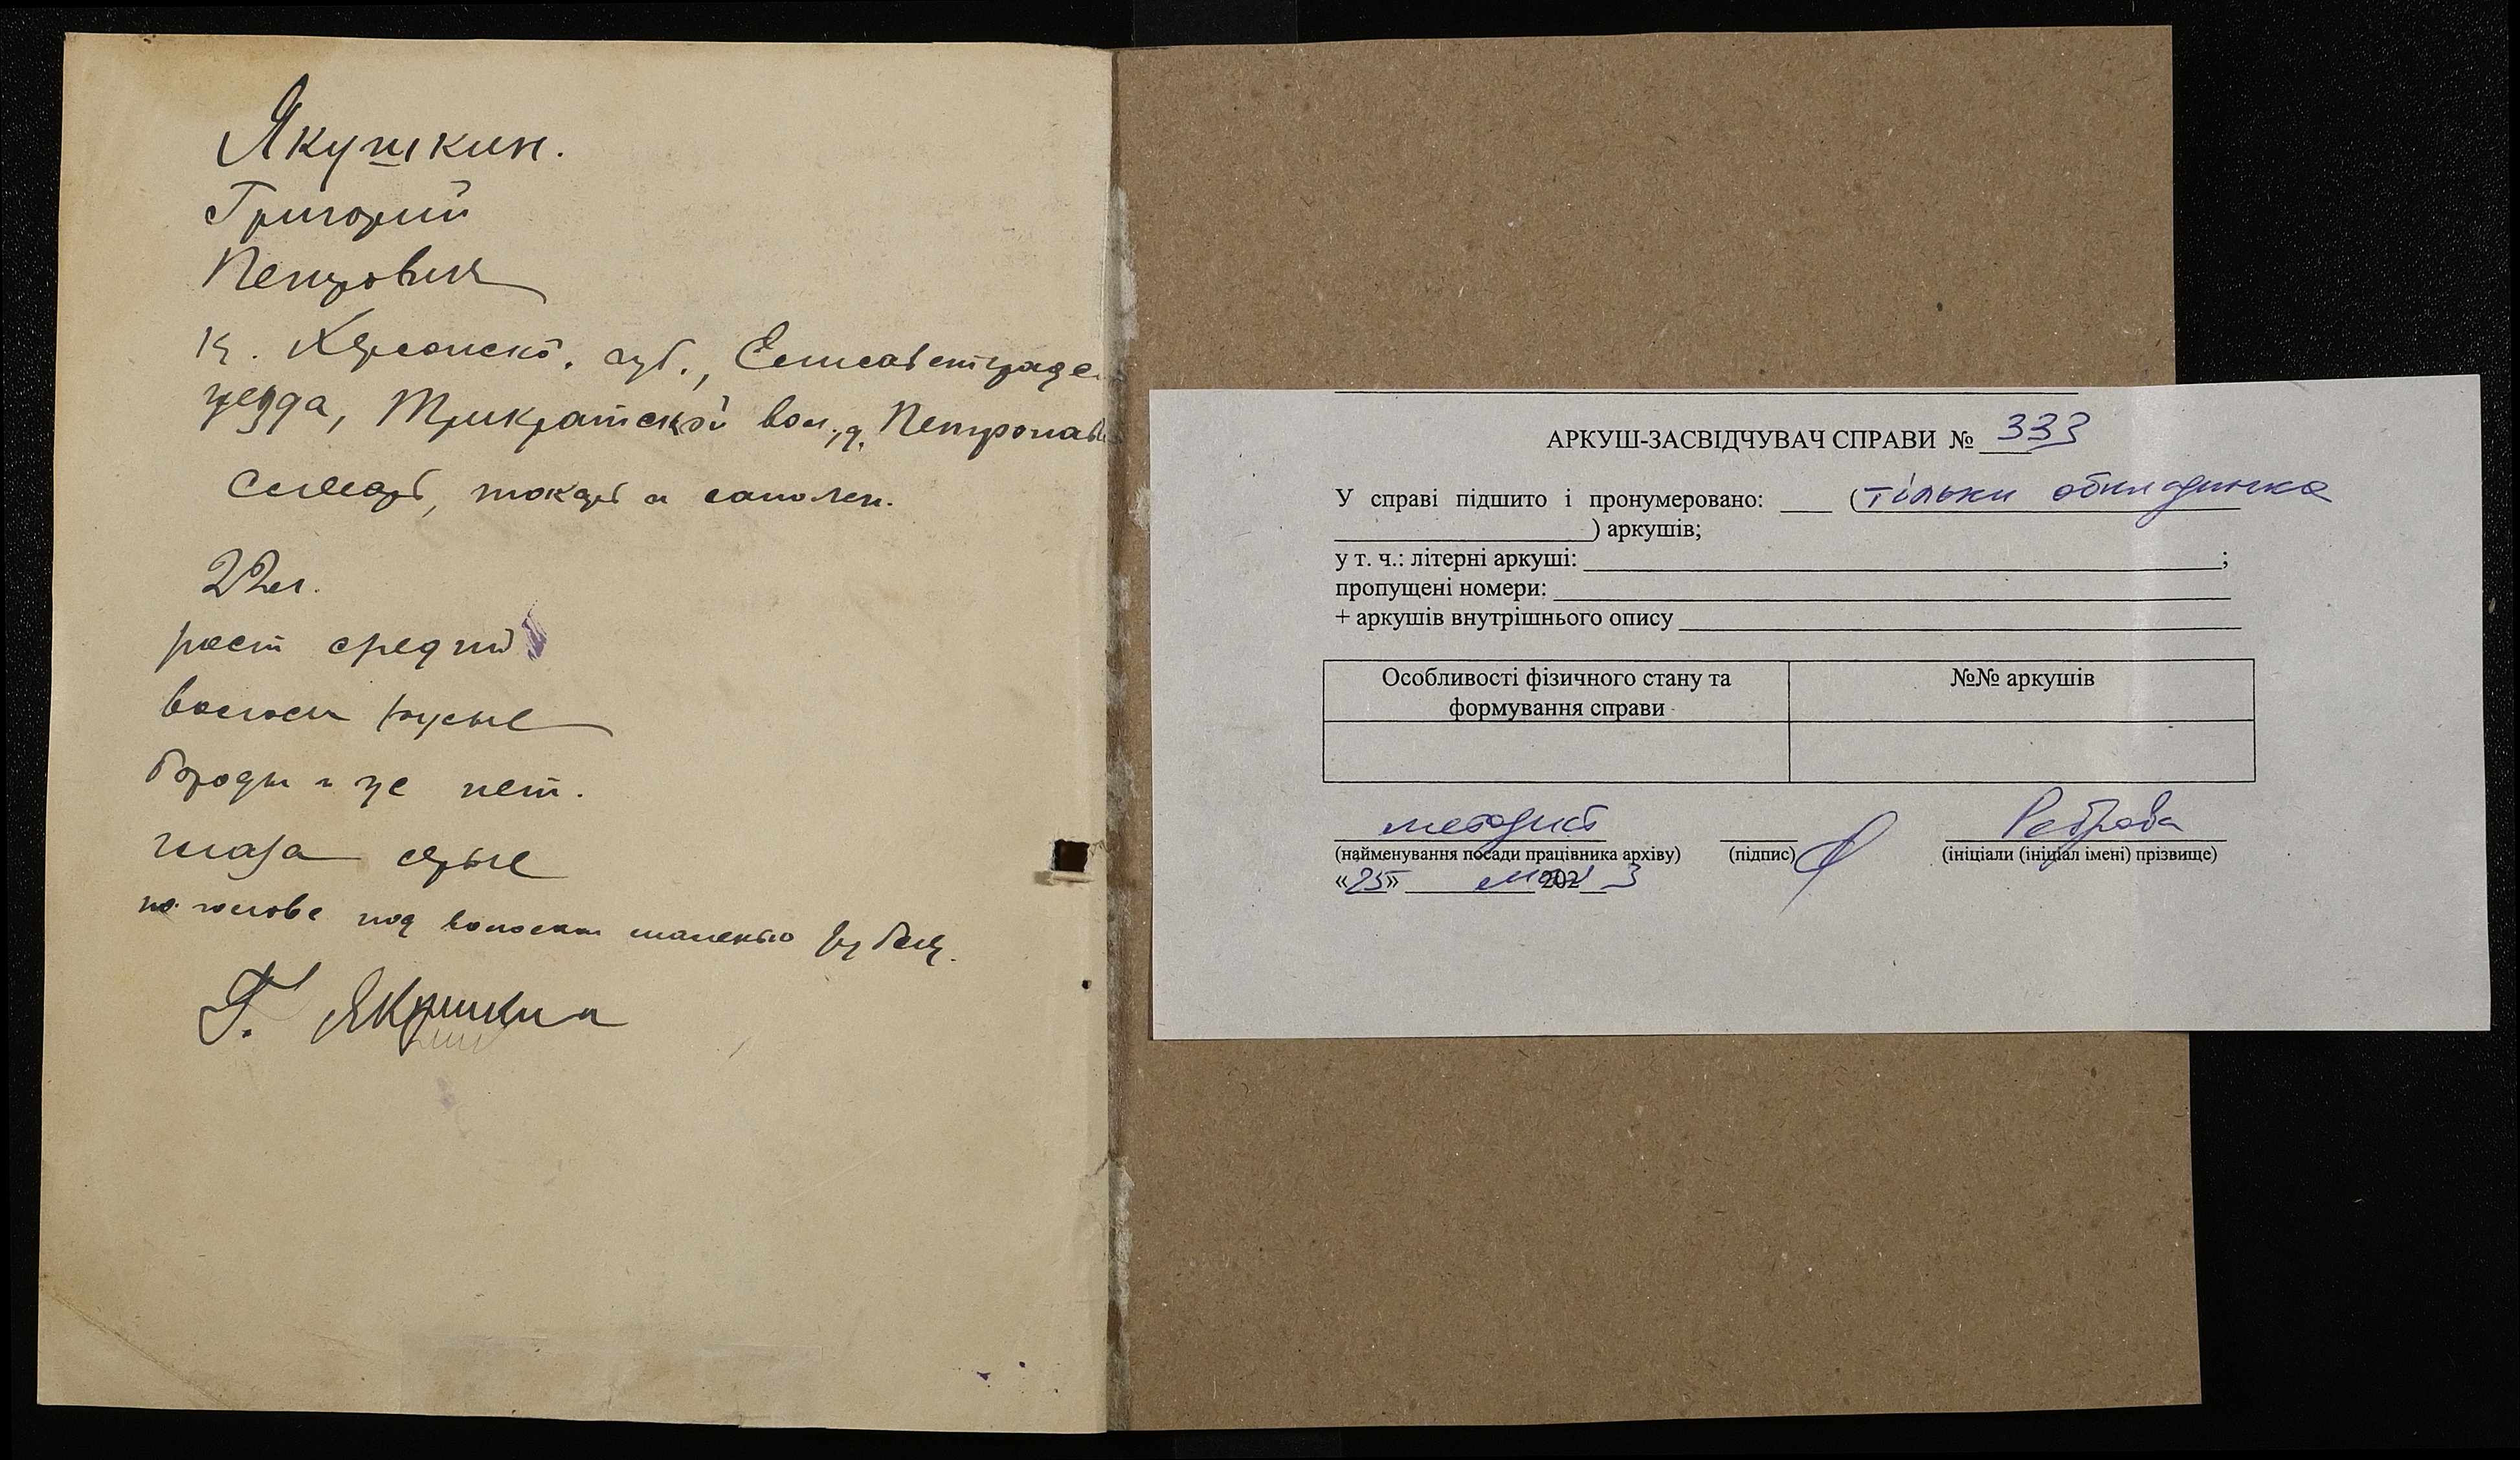 Якушкин.
Григорий
Петрович
к. Херсонско. губ., Елисаветградс
уезда, Трикратской вол., д. Петропавл
Слесарь, токарь и
22 л.
рост средний
волосы русые
бороды и ус нет.
глаза серые
на голове под волосами маленький рубец.
Г. Якушкин
АРКУШ-ЗАСВІДЧУВАЧ СПРАВИ № 333
У справі підшито і пронумеровано: ____ (тільки обкладинка
) аркушів;
у т. ч.: літерні аркуші: ;
пропущені номери:
+ аркушів внутрішнього опису
Особливості фізичного стану та
формування справи
№№ аркушів
методист Реброва
(найменування посади працівника архіву) (підпис) (ініціали (ініціал імені) прізвище)
«25» мая 2023